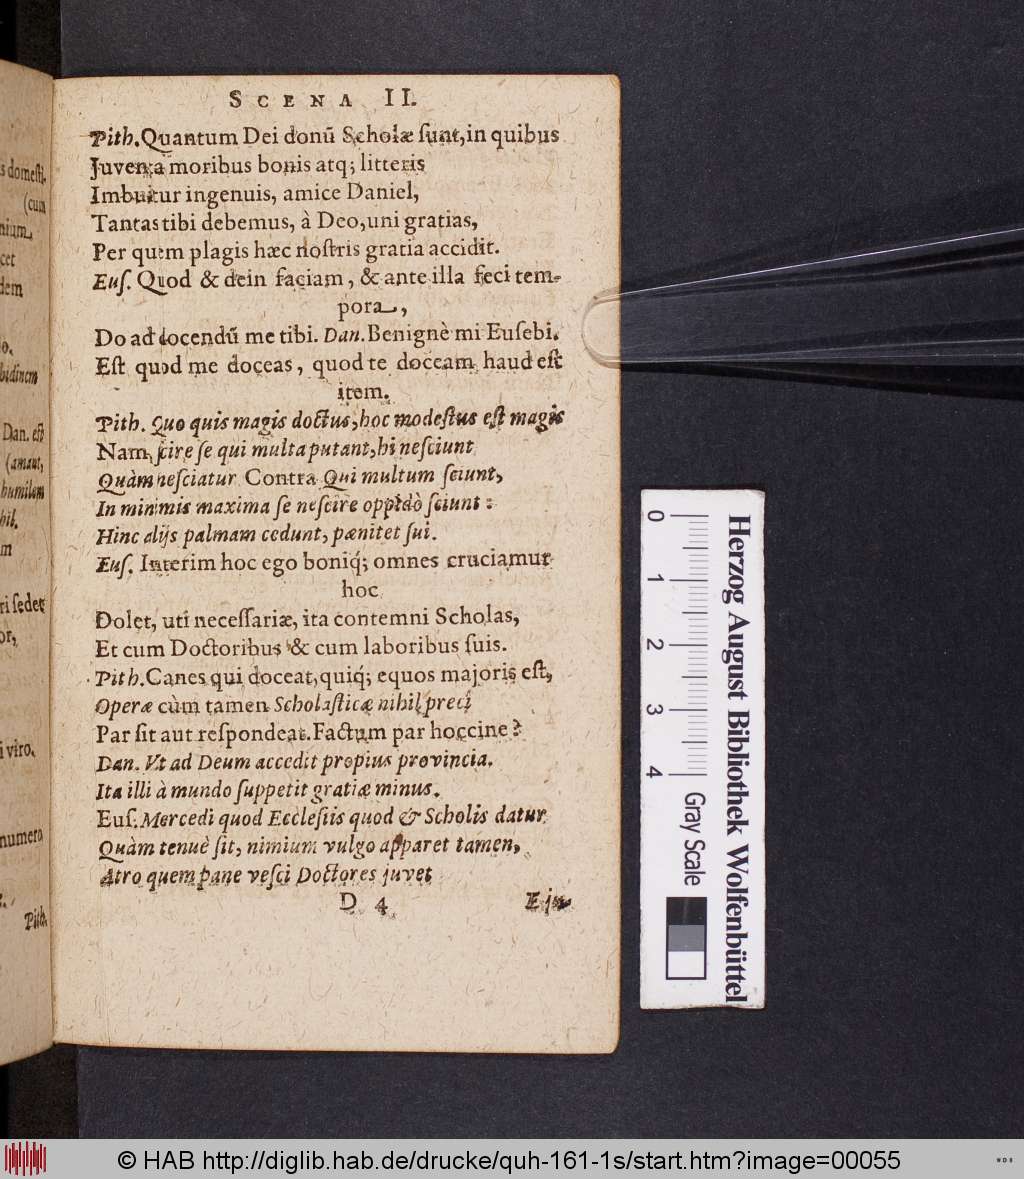 SCENA II.
Pith. Quantum Dei donũ Scholæ ſunt, in quibus
Juventa moribus bonis atq; litteris
Imbuitur ingenuis, amice Daniel,
Tantas tibi debemus, à Deo, uni gratias,
Per quem plagis hæc noſtris gratia accidit.
Euſ. Quod & dein faciam, & ante illa feci tem-
pora,
Do ad docendũ me tibi. Dan. Benignè mi Euſebi.
Eſt quod me doceas, quod te doceam haud eſt
item.
Pith. Quo quis magis doctus, hoc modeſtus eſt magis
Nam ſcire ſe qui multa putant, hi neſciunt
Quàm neſciatur Contra Qui multum ſciunt,
In minimis maxima ſe neſcire oppidò ſciunt:
Hinc alijs palmam cedunt, pænitet ſui.
Euſ. Interim hoc ego boniq́; omnes cruciamur
hoc
Dolet, uti neceſſariæ, ita contemni Scholas,
Et cum Doctoribus & cum laboribus ſuis.
Pith. Canes qui doceat, quiq́; equos majoris eſt,
Operæ cùm tamen Scholaſticæ nihil preci
Par ſit aut reſpondeat. Factum par hoccine?
Dan. Vt ad Deum accedit propius provincia.
Ita illi à mundo ſuppetit gratiæ minus.
Euſ. Mercedi quod Eccleſiis quod & Scholis datur
Quàm tenuè ſit, nimium vulgo apparet tamen,
Atro quem pane veſci Doctores juvet
D 4
s domeſti.
(cum
nium
cet
dem
o.
bidinem
Dan. eſt
(amant,
humilem
hil.
m
ri ſedet
or,
i viro.
numero
Pith.
Herzog August Bibliothek Wolfenbüttel
0 1 2 3 4
Gray Scale
© HAB http://diglib.hab.de/drucke/quh-161-1s/start.htm?image=00055